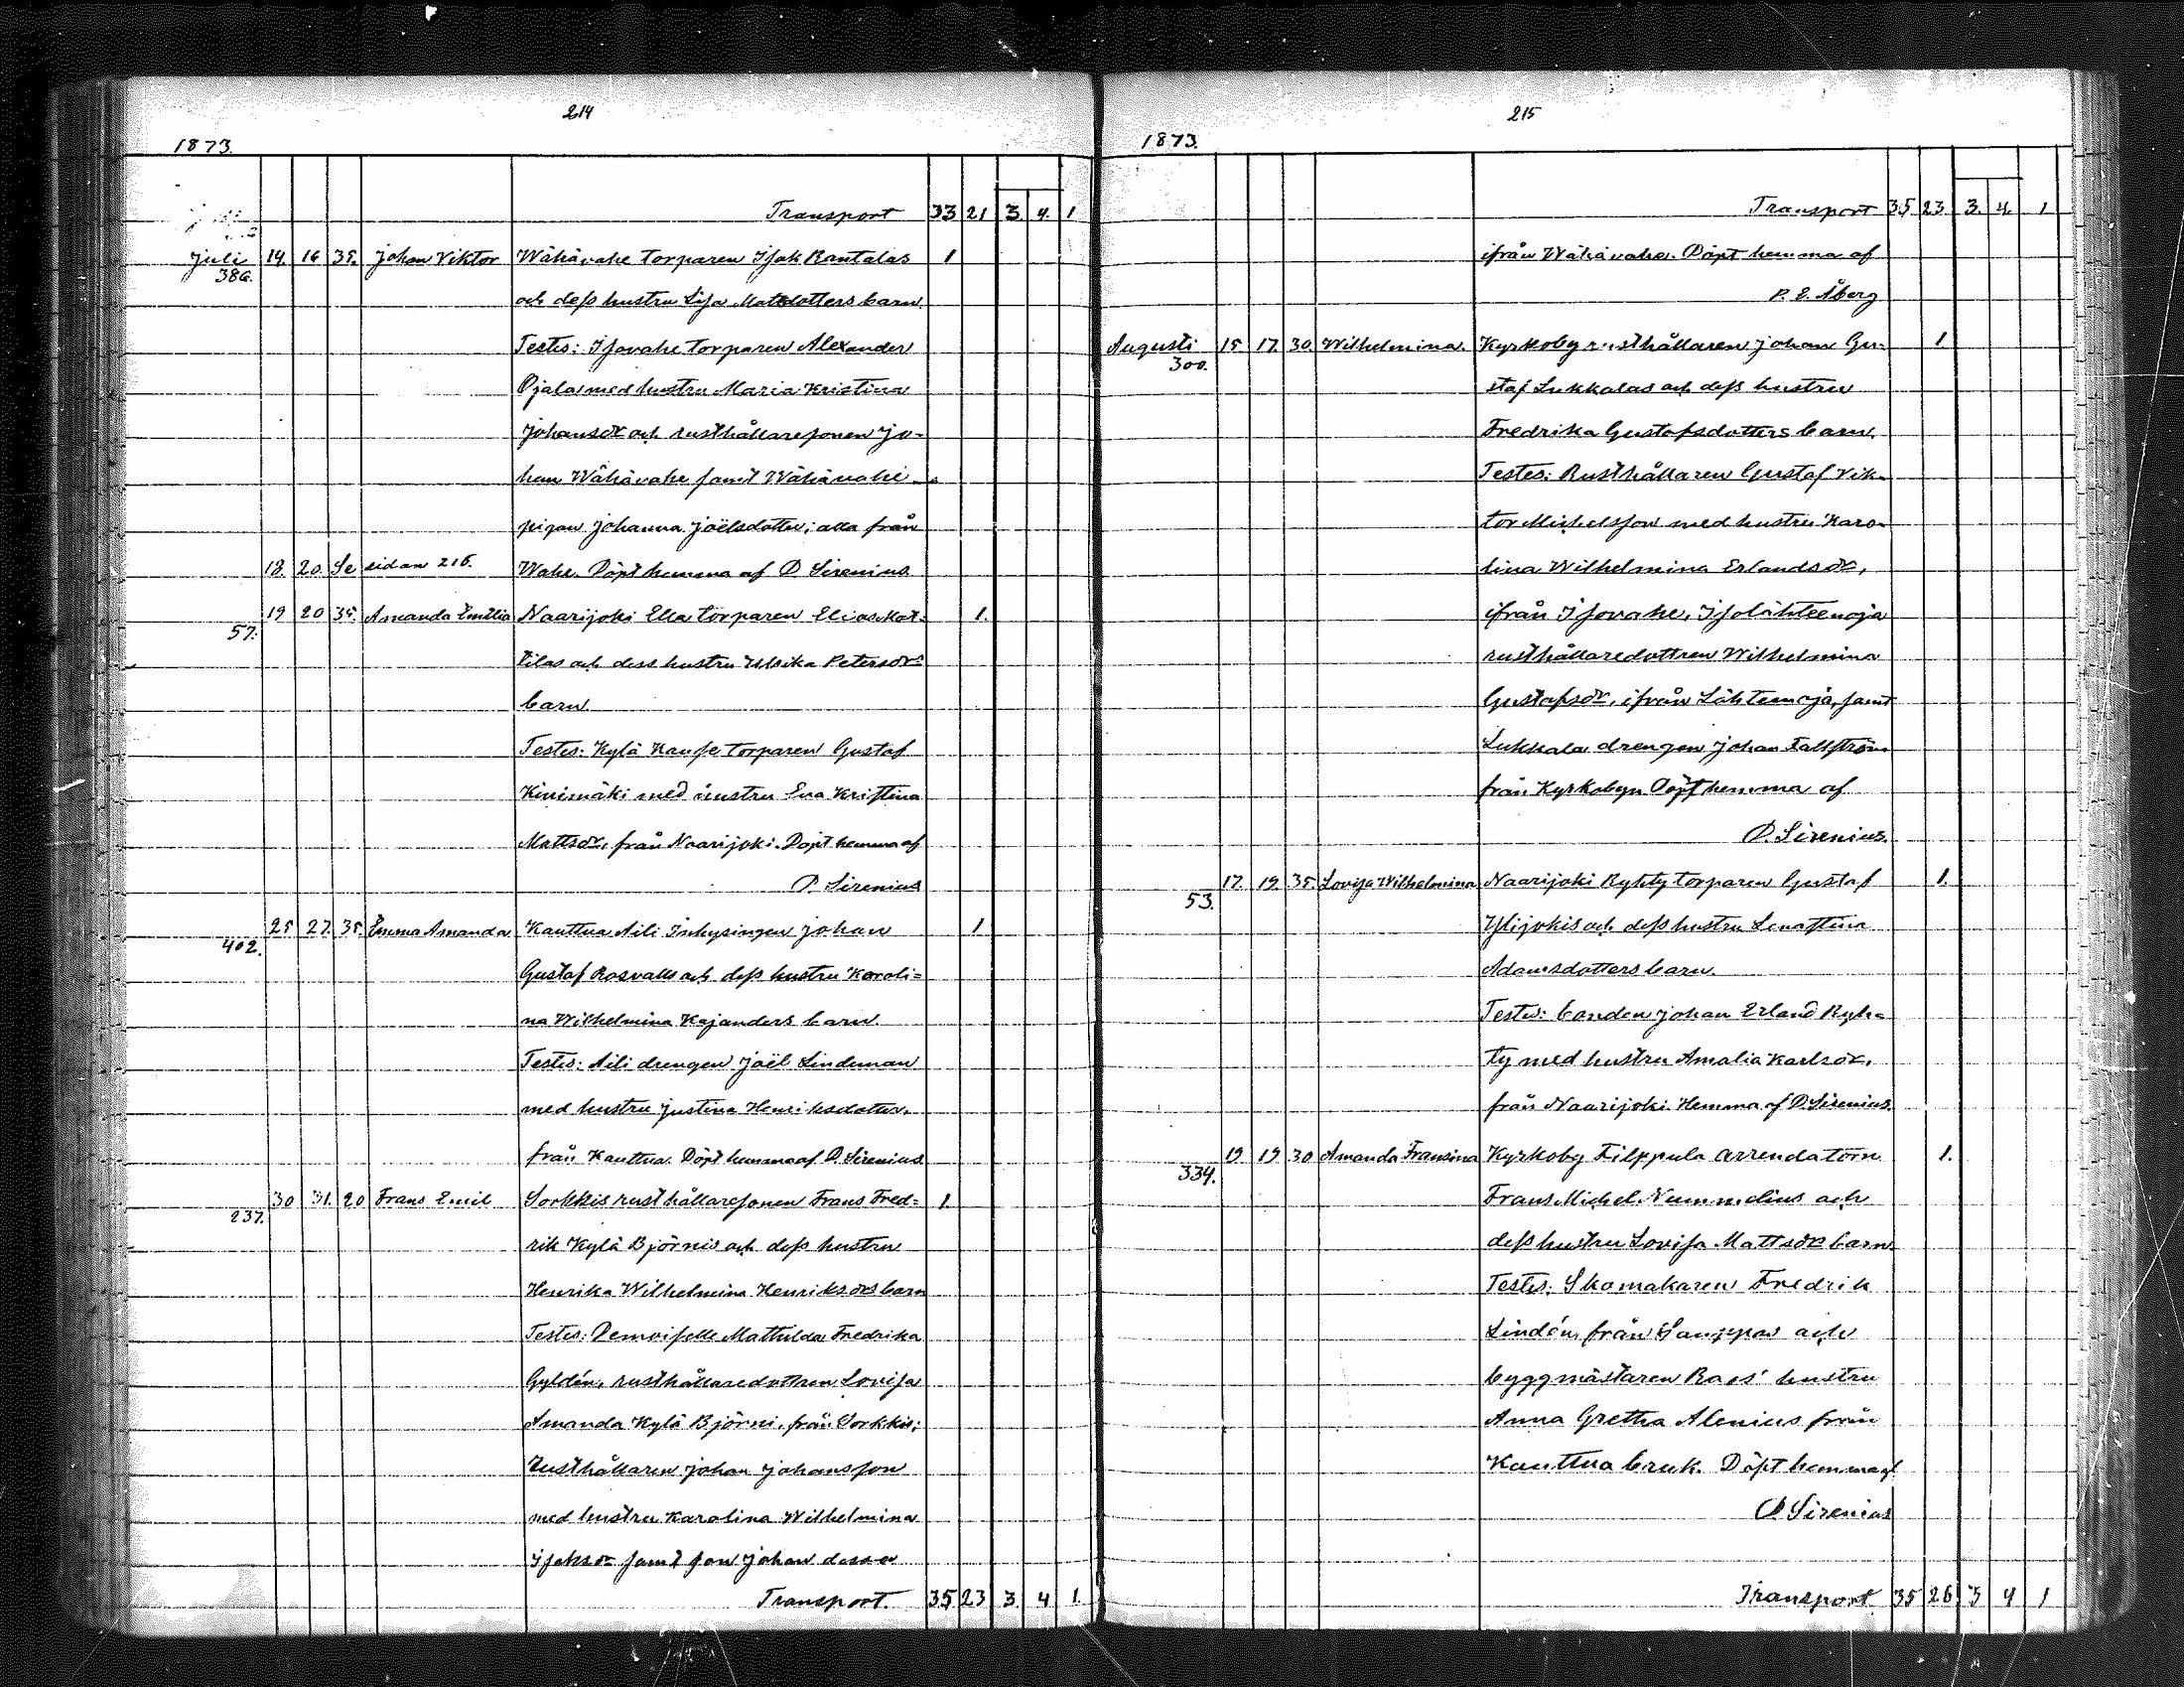 214
1873.
Transport 33 21 3. 4. 1
Juli 14. 16 35. Johan Viktor Wähävahe torparen Isak Rantalas 1
386. och dess hustru Lisa Matsdotters barn.
Testes: Isovahe torparen Alexander
Ojala med hustru Maria Kristina
Johansdr och rusthållaresonen Jo-
han Wähävahe samt Wähävahe
pigan Johanna Joëlsdotter; alla från
18. 20. Se sidan 216. Wahe. Döpt hemma af D. Sirenius.
19 20 35. Amanda Emilia Naarijoki Ella torparen Elias Mat- 1.
57. tilas och dess hustru Ulrika Petersdrs
barn.
Testes: Kylä Kause torparen Gustaf
Kivimäki med hustru Eva Kristina
Mattsdr, från Naarijoki. Döpt hemma af
D. Sirenius
25 27. 35. Emma Amanda Kauttua Aili Inhysingen Johan 1
402. Gustaf Rosvalls och dess hustru Karoli=
na Wilhelmina Kajanders barn.
Testes: Aili drengen Joël Lindeman
med hustru Justina Henriksdotter,
från Kauttua. Döpt hemma af D. Sirenius
30 31. 20 Frans Emil Sorkkis rusthållaresonen Frans Fred= 1.
237. rik Kylä Björnis och dess hustru
Henrika Wilhelmina Henriksdrs barn
Testes: Demoiselle Mathilda Fredrika
Gyldén, rusthållaredottren Lovisa
Amanda Kylä Björni, från Sorkkis;
Rusthållaren Johan Johansson
med hustru Karolina Wilhelmina
Isaksdr samt son Johan desse
Transport. 35 23 3. 4 1.
215
1873.
Transport 35 23. 3. 4. 1
ifrån Wähävahe. Döpt hemma af
P. E. Åberg
Augusti 15. 17. 30. Wilhelmina. Kyrkoby rusthållaren Johan Gu- 1.
300. staf Lukkalas och dess hustru
Fredrika Gustafsdotters barn.
Testes: Rusthållaren Gustaf Vik-
tor Michelsson med hustru Karo-
lina Wilhelmina Erlandsdr,
ifrån Isovahe, Isolähteenoja
rusthållaredottren Wilhelmina
Gustafsdr, ifrån Lähteenoja, samt
Lukkala drengen Johan Fallström
från Kyrkobyn Döpt hemma af
D. Sirenius.
17. 19. 35. Lovisa Wilhelmina Naarijoki Ryhty torparen Gustaf 1.
53. Ylijokis och dess hustru Lenastina
Adamsdotters barn.
Testes: bonden Johan Erland Ryh-
ty med hustru Amalia Karlsdr,
från Naarijoki. Hemma af D. Sirenius.
19 19 30 Amanda Fransina Kyrkoby Filppula arrendatorn 1.
334. Frans Michel Nummelins och
dess hustru Lovisa Mattsdrs barn
Testes: Skomakaren Fredrik
Lindén, från och
byggmästaren Raas' hustru
Anna Gretha Alenius från
Kauttua bruk. Döpt hemma af
D. Sirenius
Transport 35 26 3 4 1